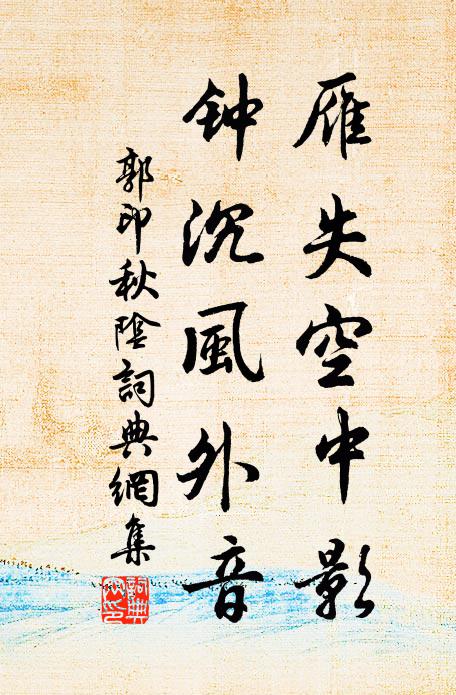 雁失空中影
钟沉風外音
郭印秋陰詞典網集